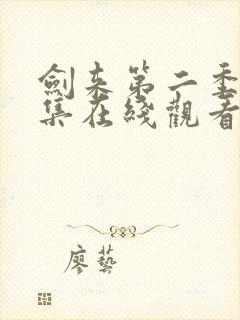 劍来第二季
集在綫觀看
廖藝